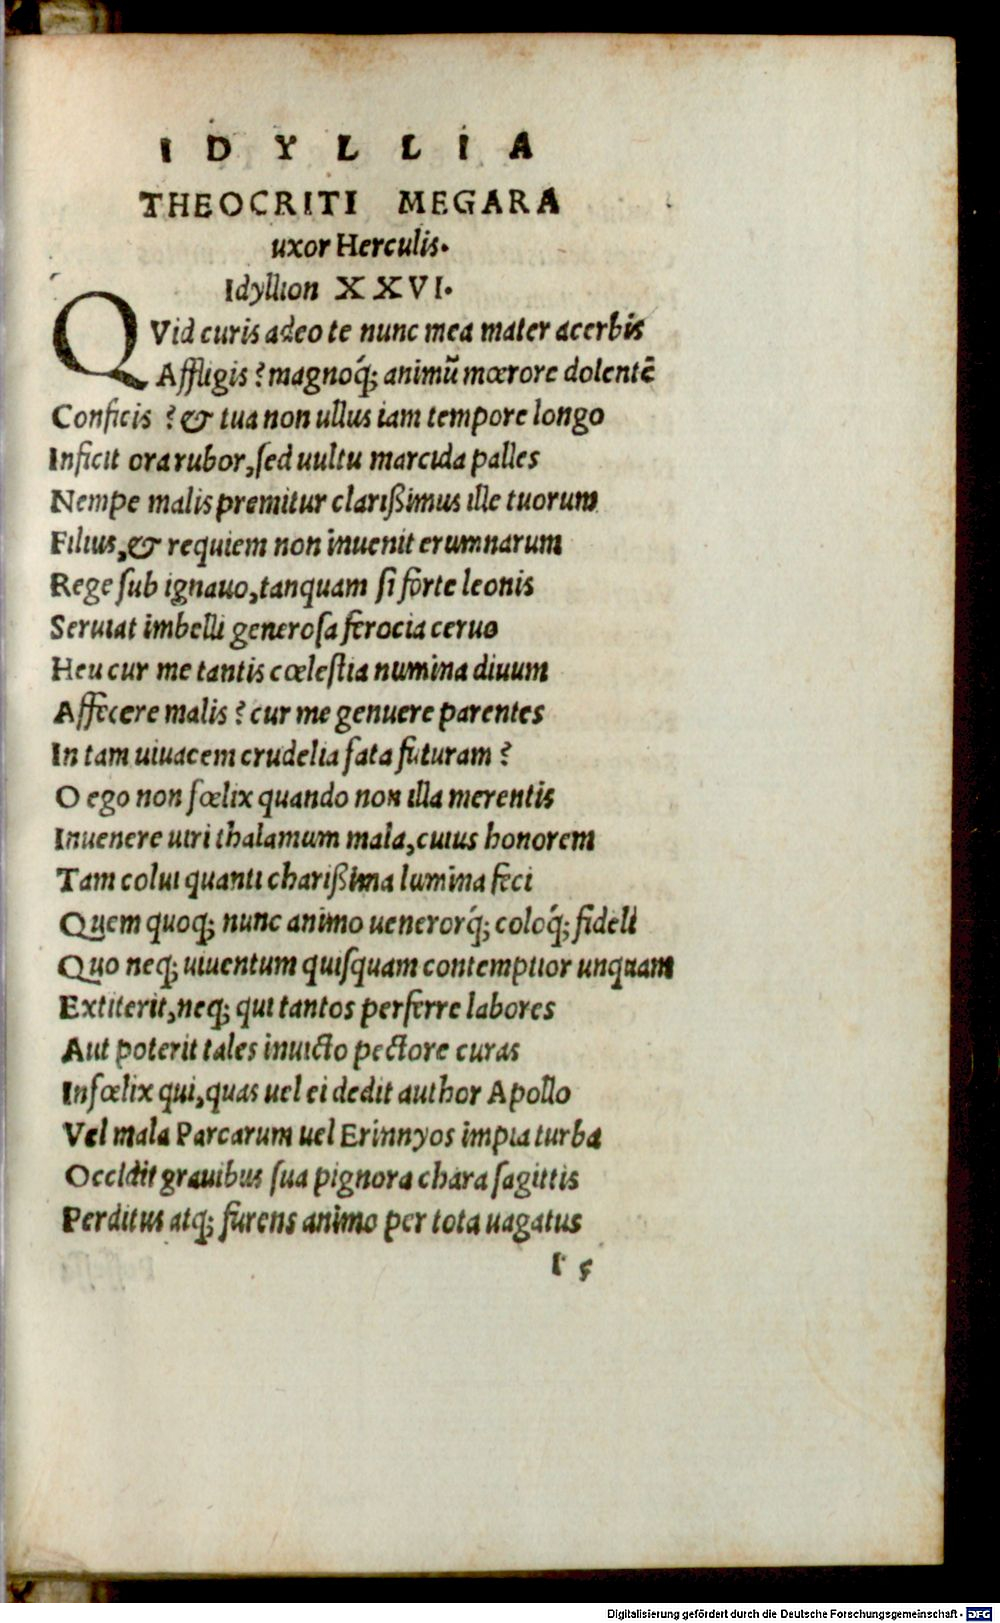 IDYLLIA
THEOCRITI MEGARA
uxor Herculis.
Idyllion XXVI.
QVid curis adeo te nunc mea mater acerbis
Affligis? magnoq́; animũ mœrore dolentẽ
Conficis? & tua non ullus iam tempore longo
Inficit ora rubor, ſed uultu marcida palles
Nempe malis premitur clarißimus ille tuorum
Filius, & requiem non inuenit erumnarum
Rege ſub ignauo, tanquam ſi forte leonis
Seruiat imbelli generoſa ferocia ceruo
Heu cur me tantis cœleſtia numina diuum
Affecere malis? cur me genuere parentes
In tam uiuacem crudelia fata futuram?
O ego non fœlix quando non illa merentis
Inuenere uiri thalamum mala, cuius honorem
Tam colui quanti charißima lumina feci
Quem quoq; nunc animo uenerorq́; coloq́; fideli
Quo neq; uiuentum quiſquam contemptior unquam
Extiterit, neq; qui tantos perferre labores
Aut poterit tales inuicto pectore curas
Infœlix qui, quas uel ei dedit author Apollo
Vel mala Parcarum uel Erinnyos impia turba
Occidit grauibus ſua pignora chara ſagittis
Perditus atq; furens animo per tota uagatus
Digitalisierung gefördert durch die Deutsche Forschungsgemeinschaft - DFG